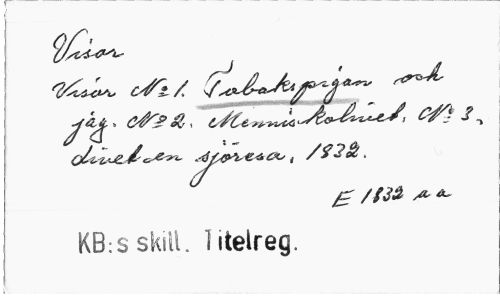 Visor
Visor № 1. Tobakspigan och
jag. № 2. Menniskolivet. № 3.
Livet en sjöresa. 1832.
E 1832 a a
KB:s skill. Titelreg.